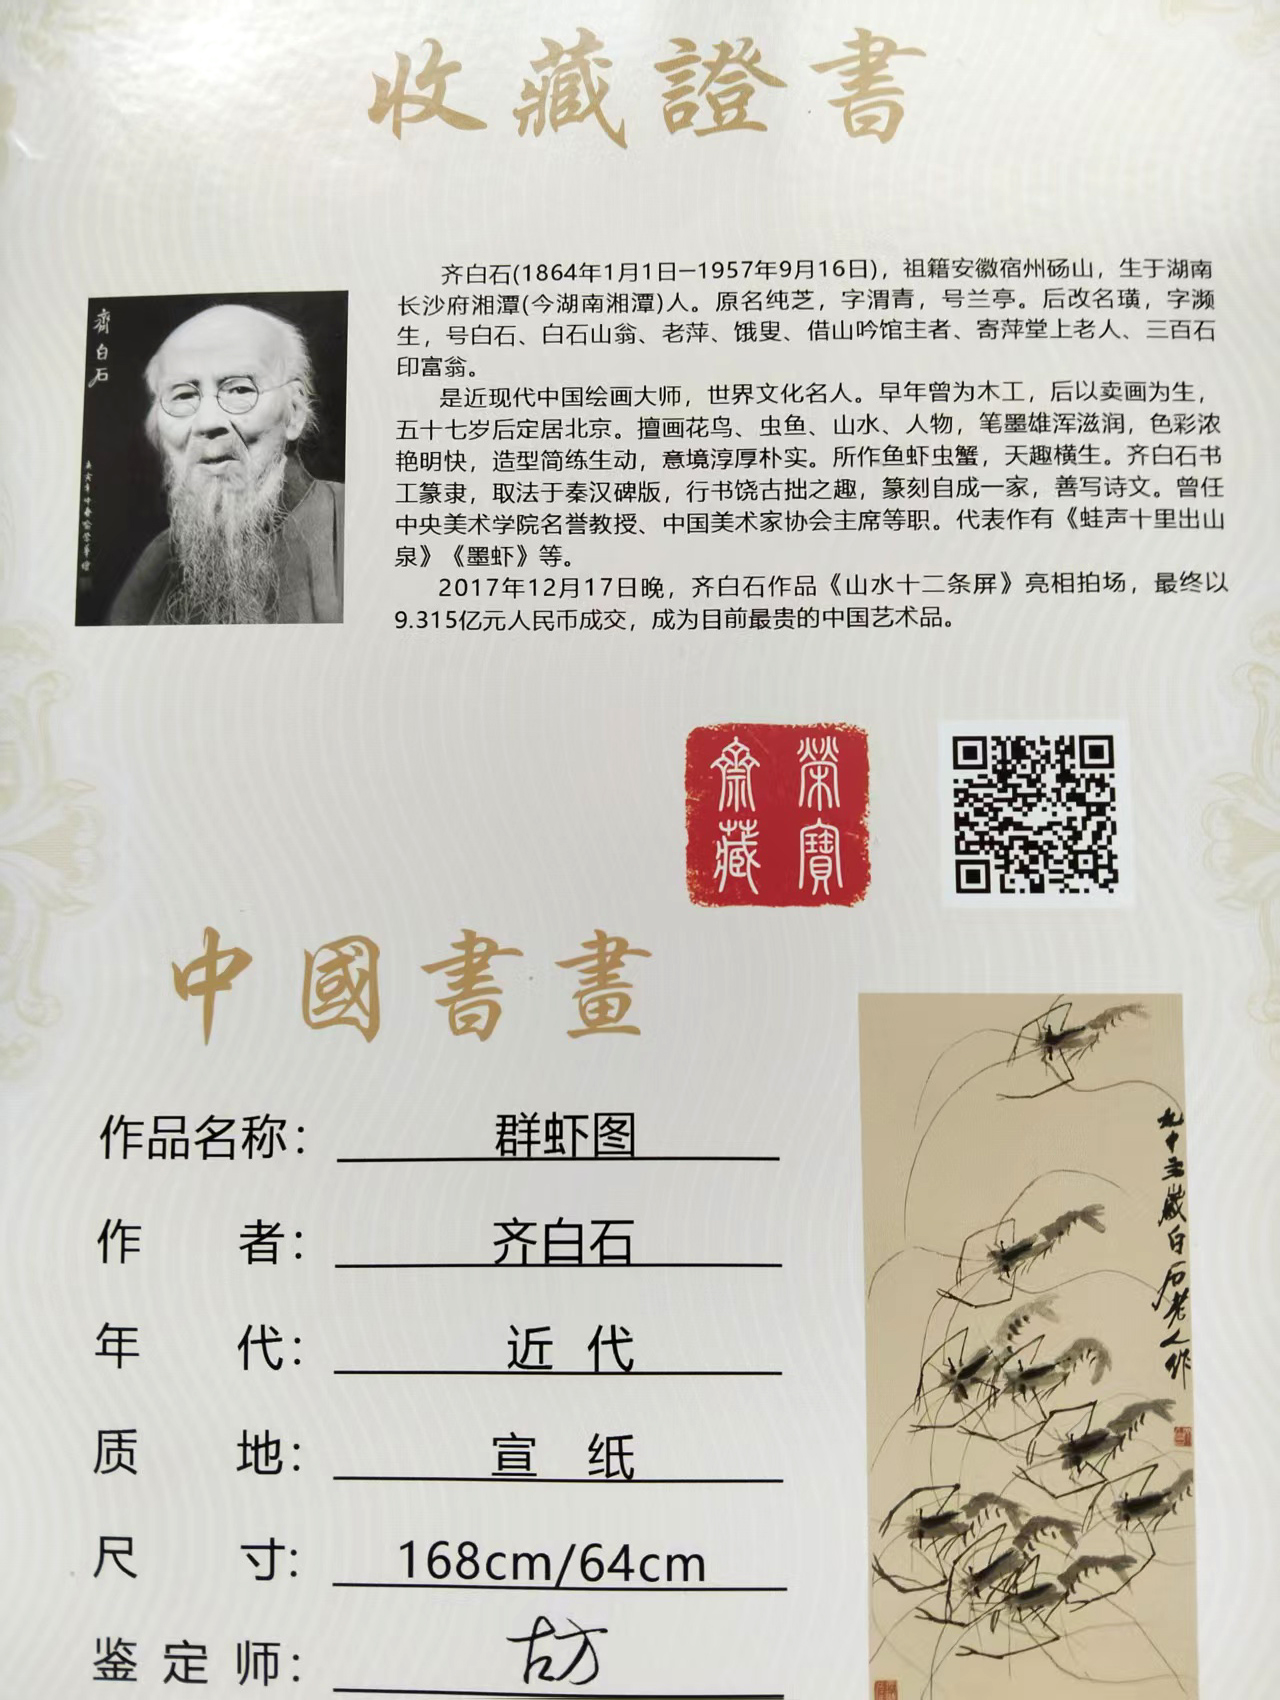 收藏證書
齊白石
齐白石(1864年1月1日—1957年9月16日)，祖籍安徽宿州砀山，生于湖南
长沙府湘潭(今湖南湘潭)人。原名纯芝，字渭青，号兰亭。后改名璜，字濒
生，号白石、白石山翁、老萍、饿叟、借山吟馆主者、寄萍堂上老人、三百石
印富翁。
是近现代中国绘画大师，世界文化名人。早年曾为木工，后以卖画为生，
五十七岁后定居北京。擅画花鸟、虫鱼、山水、人物，笔墨雄浑滋润，色彩浓
艳明快，造型简练生动，意境淳厚朴实。所作鱼虾虫蟹，天趣横生。齐白石书
工篆隶，取法于秦汉碑版，行书饶古拙之趣，篆刻自成一家，善写诗文。曾任
中央美术学院名誉教授、中国美术家协会主席等职。代表作有《蛙声十里出山
泉》《墨虾》等。
2017年12月17日晚，齐白石作品《山水十二条屏》亮相拍场，最终以
9.315亿元人民币成交，成为目前最贵的中国艺术品。
榮寶
齋藏
中國書畫
作品名称：群虾图
作者：齐白石
年代：近代
质地：宣纸
尺寸：168cm/64cm
鉴定师：古方
九十五歲白石老人作